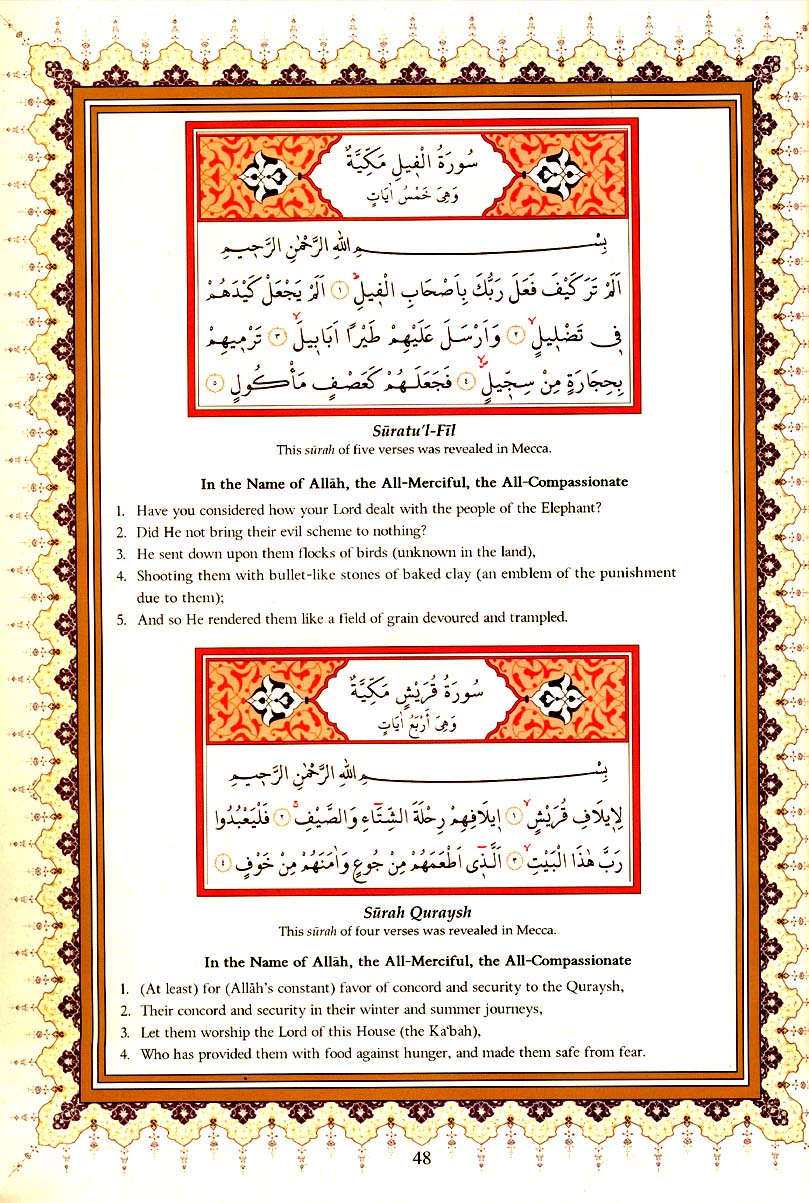 سُورَةُ الْفِيلِ مَكِّيَّةٌ
وَهِىَ خَمْسُ اٰيَاتٍ
بِسْمِ اللّٰهِ الرَّحْمٰنِ الرَّحِيمِ
اَلَمْ تَرَ كَيْفَ فَعَلَ رَبُّكَ بِاَصْحَابِ الْفِيلِ ۱ اَلَمْ يَجْعَلْ كَيْدَهُمْ
فِى تَضْلِيلٍ ۲ وَاَرْسَلَ عَلَيْهِمْ طَيْرًا اَبَابِيلَ ۳ تَرْمِيهِمْ
بِحِجَارَةٍ مِنْ سِجِّيلٍ ٤ فَجَعَلَهُمْ كَعَصْفٍ مَأْكُولٍ ٥
Sūratu’l-Fīl
This sūrah of five verses was revealed in Mecca.
In the Name of Allāh, the All-Merciful, the All-Compassionate
1. Have you considered how your Lord dealt with the people of the Elephant?
2. Did He not bring their evil scheme to nothing?
3. He sent down upon them flocks of birds (unknown in the land),
4. Shooting them with bullet-like stones of baked clay (an emblem of the punishment
due to them);
5. And so He rendered them like a field of grain devoured and trampled.
سُورَةُ قُرَيْشٍ مَكِّيَّةٌ
وَهِىَ اَرْبَعُ اٰيَاتٍ
بِسْمِ اللّٰهِ الرَّحْمٰنِ الرَّحِيمِ
لِاِيلَافِ قُرَيْشٍ ۱ اِيلَافِهِمْ رِحْلَةَ الشِّتَٓاءِ وَالصَّيْفِ ۲ فَلْيَعْبُدُوا
رَبَّ هٰذَا الْبَيْتِ ۳ اَلَّذِٓى اَطْعَمَهُمْ مِنْ جُوعٍ وَاٰمَنَهُمْ مِنْ خَوْفٍ ٤
Sūrah Quraysh
This sūrah of four verses was revealed in Mecca.
In the Name of Allāh, the All-Merciful, the All-Compassionate
1. (At least) for (Allāh’s constant) favor of concord and security to the Quraysh,
2. Their concord and security in their winter and summer journeys,
3. Let them worship the Lord of this House (the Ka‘bah),
4. Who has provided them with food against hunger, and made them safe from fear.
48